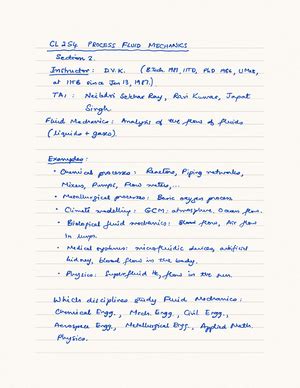 CL 254 PROCESS FLUID MECHANICS
Section 2.
Instructor : D.V.K. (B.Tech. 1981, IITD, PhD 1986, UMass,
at IITB since Jan 13, 1987.)
TA : Neiladri Sekhar Ray, Ravi Kumar, Japat
Singh
Fluid Mechanics : Analysis of the flow of fluids
(liquids + gases).
Examples :
• Chemical processes : Reactors, Piping networks,
Mixers, Pumps, Flow meters,...
• Metallurgical processes : Basic oxygen process
• Climate modelling : GCM : atmosphere, Ocean flow.
• Biological fluid mechanics : Blood flow, Air flow
in lungs.
• Medical systems : microfluidic devices, artificial
kidney, blood flow in the body.
• Physics : Superfluid He, flow in the sun.
Which disciplines study Fluid Mechanics :
Chemical Engg., Mech. Engg., Civil Engg.,
Aerospace Engg., Metallurgical Engg., Applied Math.
Physics.